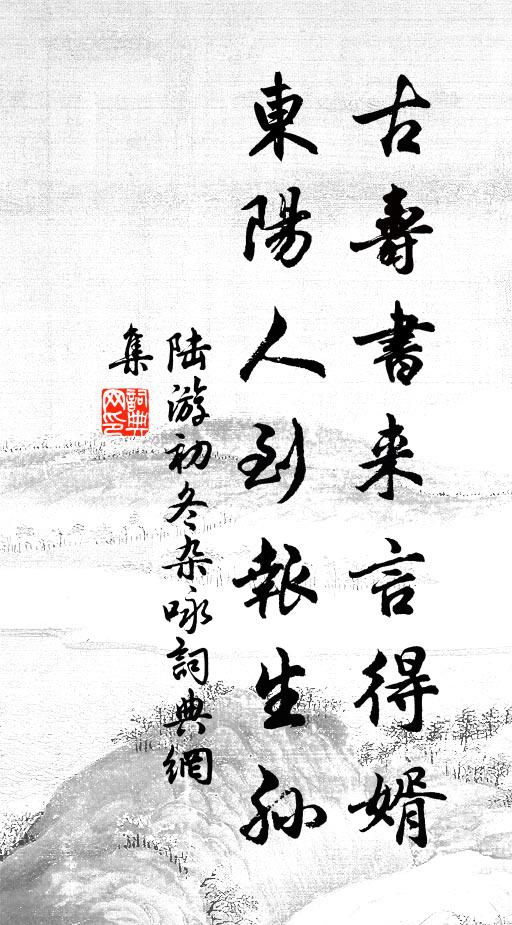 古壽書来言得婿
東陽人到報生孫
陆游初冬杂咏詞典網
集
詞典网印